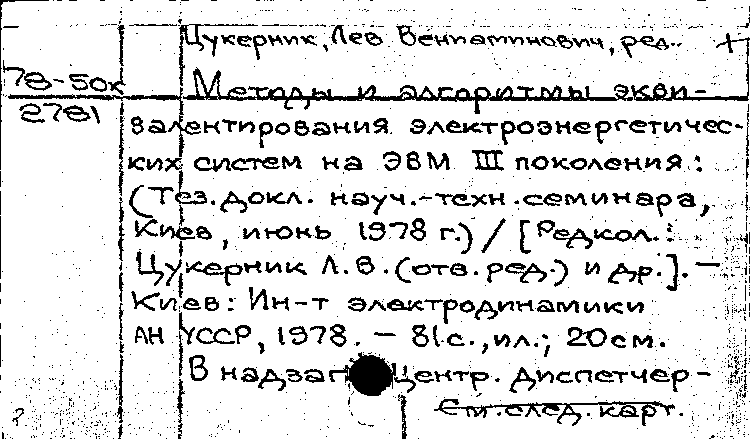 Цукерник, Лев Вениаминович, ред.. +
78-50к
2781
Методы и алгоритмы экви-
валентирования электроэнергетичес-
ких систем на ЭВМ III поколения:
(Тез. докл. науч.-техн. семинара,
Киев, июнь 1978 г.) / [Редкол.:
Цукерник Л.В. (отв. ред.) и др.]. –
Киев: Ин-т электродинамики
АН УССР, 1978. – 81 с., ил.; 20 см.
В надзаг Центр. диспетчер-
См. след. карт.